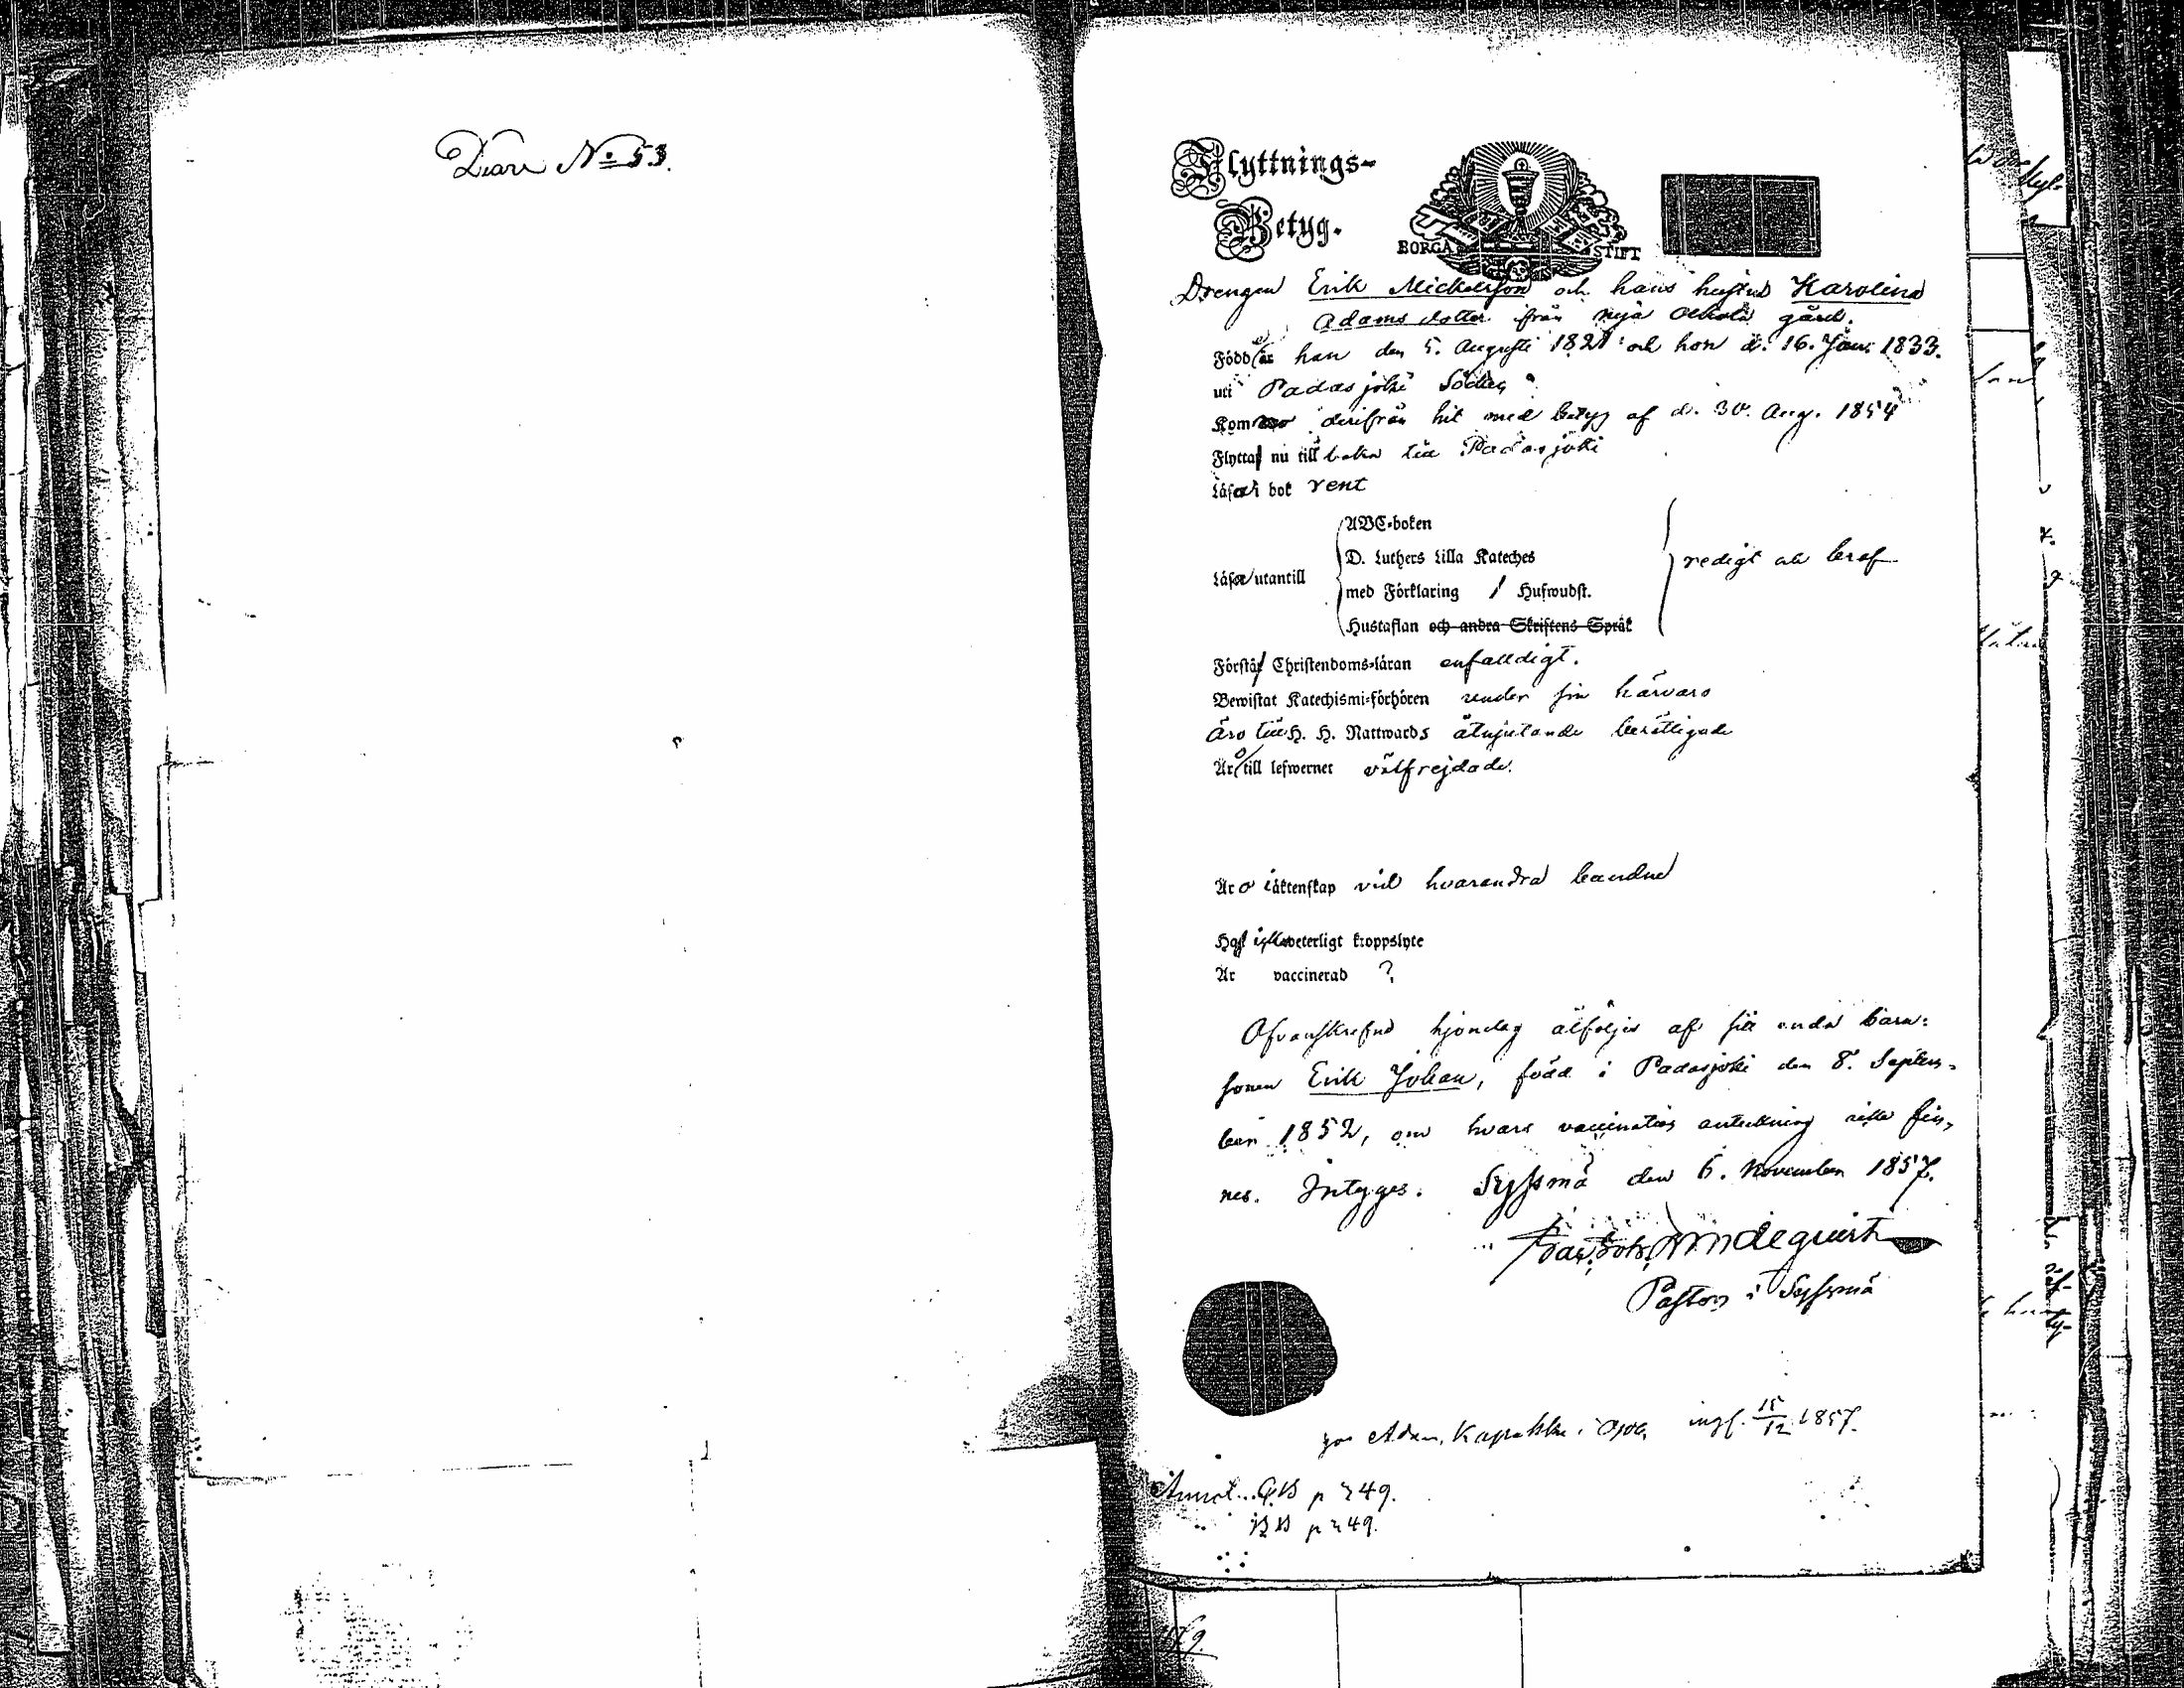 Diar. No 53.
Flyttnings-
Betyg.
BORGÅ STIFT
Drengen Erik Mickelsson och hans hustru Karolina
Adams dotter från Nya gård.
Född är han den 5. Augusti 1821 och hon d. 16. Jan. 1833.
uti Padasjoki Socken
Kom derifrån hit med betyg af d. 30. Aug. 1854
Flytta nu till baka till Padasjoki
Läsa i bok rent
ABC-boken
D. Luthers Lilla Kateches
Läsa utantill
med Förklaring / Hufwudst.
Hustaflan och andra Skriftens Språk
redigt och
Förstå Christendoms-läran enfalldigt.
Bewistat Katechismi-förhören under sin härvaro
äro till H. H. Nattwards åtnjutande berättigade
Äro till lefwernet välfrejdade.
Äro i äktenskap vid hvarandra bundne
Haf icke weterligt kroppslyte
Är vaccinerad ?
Ofvanskrefne hjonelag åtföljes af sitt enda barn:
sonen Erik Johan, född i Padasjoki den 8. Septem-
ber 1852, om hvars vaccination anteckning icke fin-
nes. Intygas. Sysmä den 6. November 1857.
Pastor i Sysmä
ingf. 15/12 1857.
Annot. p 249.
p 249.